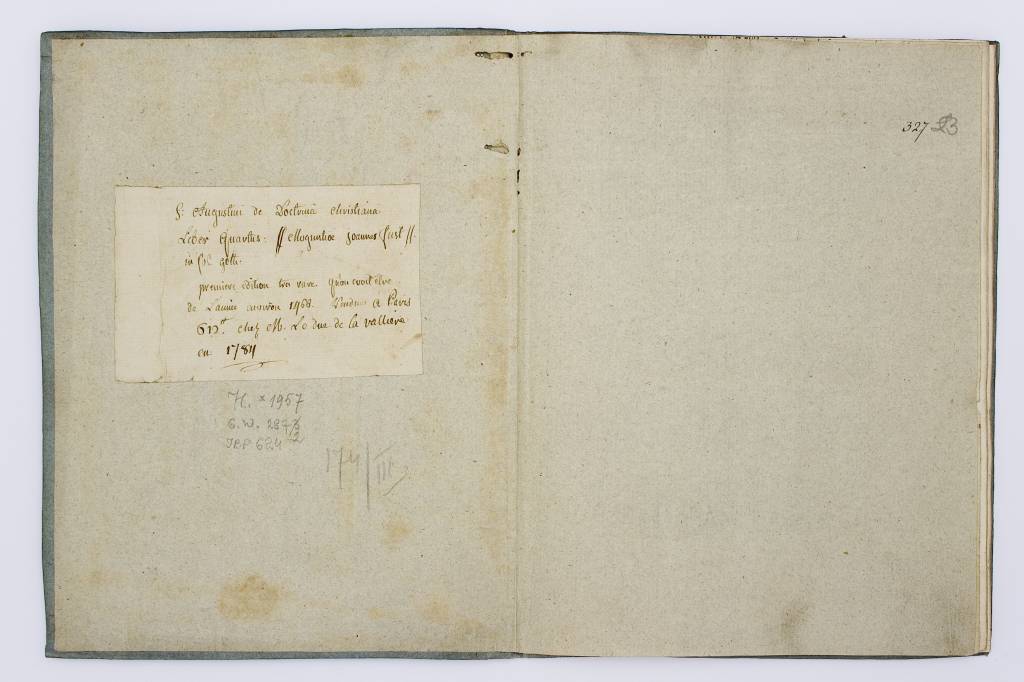 S. Augustini de Doctrina christiana
Liber Quartus. // Moguntiae Joannes Fust //
in fol. goth.
premiere édition tres rare. qu'on croit être
de L'année environ 1466. Vendue a Paris
chez M. Le duc de la valliere
en 1784
H. × 1957
G.W. 287
IBP 624
174/III
327 23